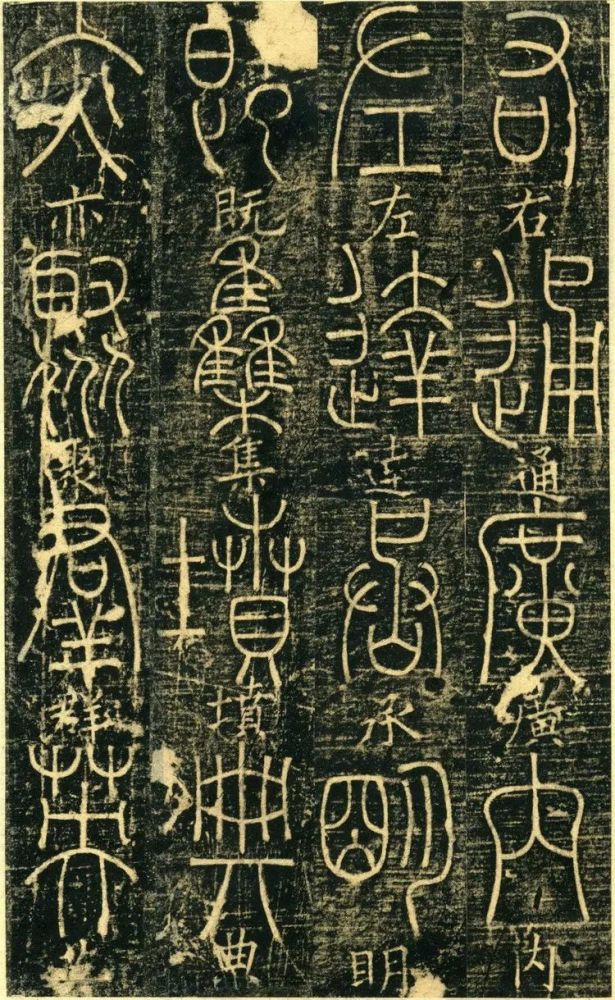 右通廣内
左達承明
既集墳典
亦聚群英